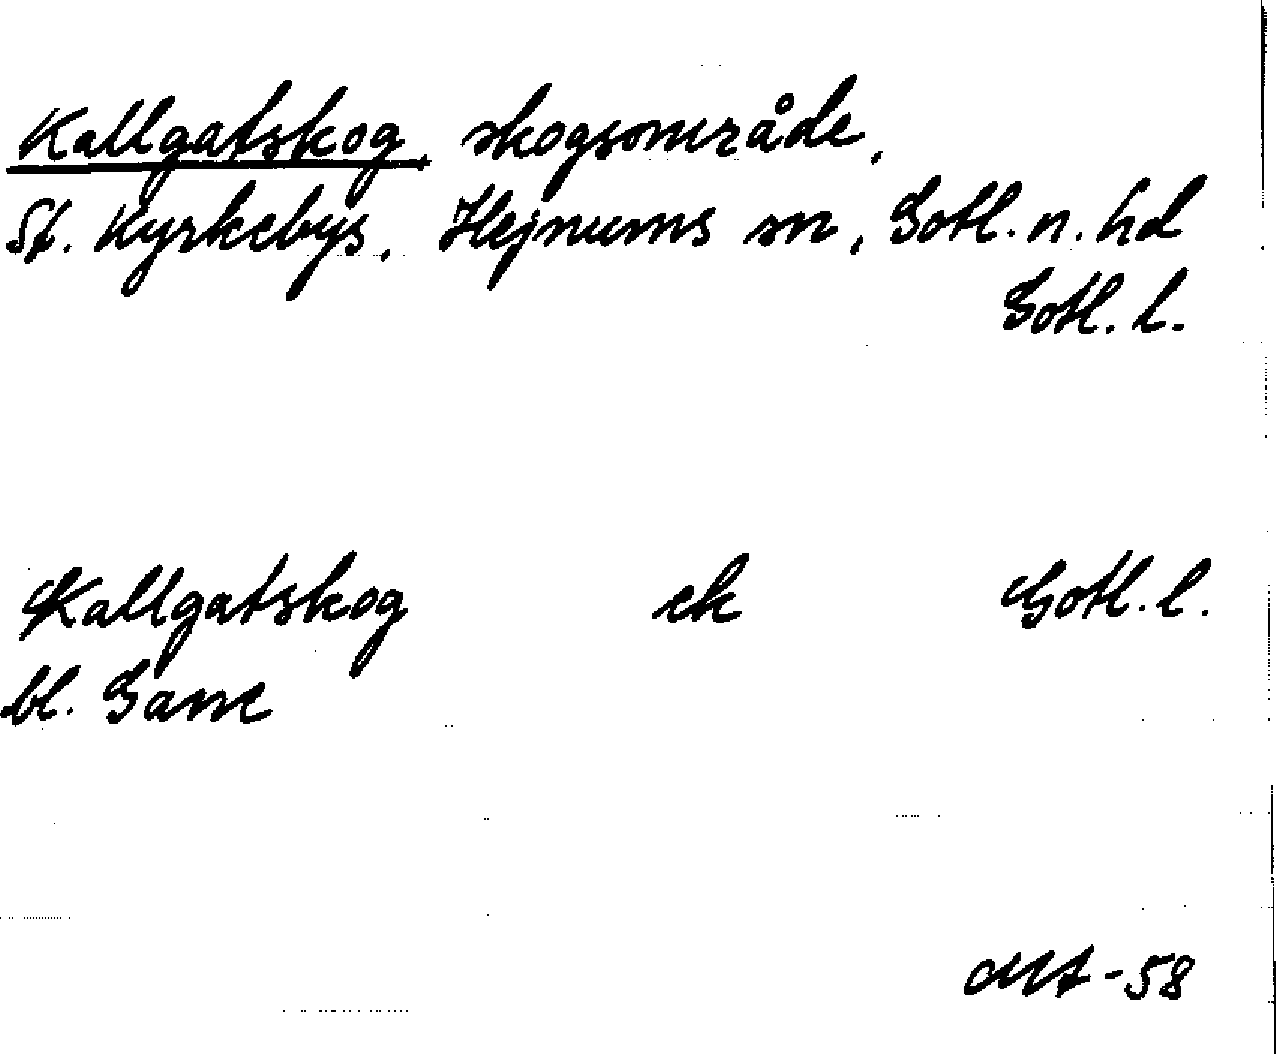 Kallgatskog, skogsområde,
St. Kyrkebys, Hejnums sn, Gotl. n. hd
Gotl. l.
Kallgatskog ek Gotl. l.
bl. Gane
-58